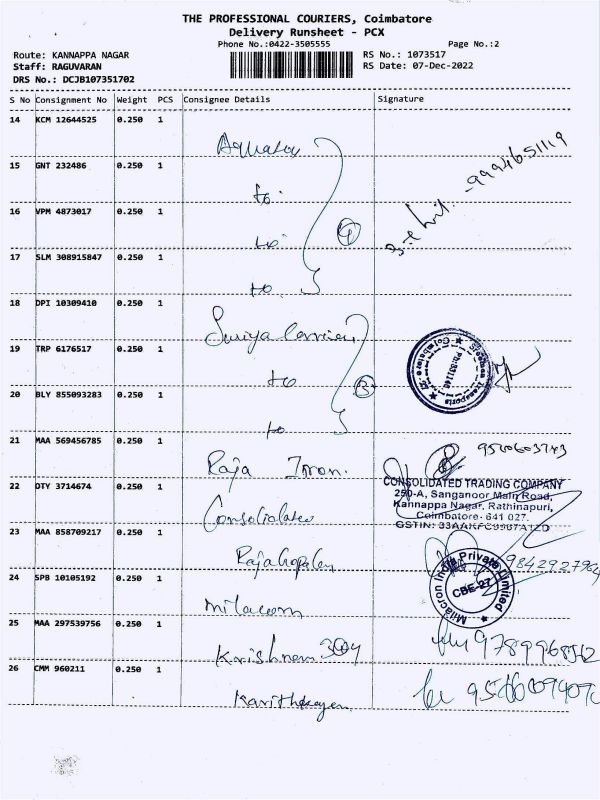 THE PROFESSIONAL COURIERS, Coimbatore
Delivery Runsheet - PCX
Phone No.:0422-3505555
Page No.:2
Route: KANNAPPA NAGAR
RS No.: 1073517
Staff: RAGUVARAN
RS Date: 07-Dec-2022
DRS No.: DCJB107351702
S No Consignment No Weight PCS Consignee Details Signature
14 KCM 12644525 0.250 1
15 GNT 232486 0.250 1
9994651119
to
16 VPM 4873017 0.250 1
to
4
17 SLM 308915847 0.250 1
to
18 DPI 10309410 0.250 1
Suriya Carrier
19 TRP 6176517 0.250 1
Sreehea Transports
Coimbatore
to
3
20 BLY 855093283 0.250 1
to
21 MAA 569456785 0.250 1
Raja Iron.
22 DTY 3714674 0.250 1
CONSOLIDATED TRADING COMPANY
250-A, Sanganoor Main Road,
Kannappa Nagar, Rathinapuri,
Coimbatore- 641 027.
Consolidated
23 MAA 858709217 0.250 1
RajaGopalan
Milacron India Private Limited
CBE-27
24 SPB 10105192 0.250 1
Milacron
25 MAA 297539756 0.250 1
Krishnan 304
26 CMM 960211 0.250 1